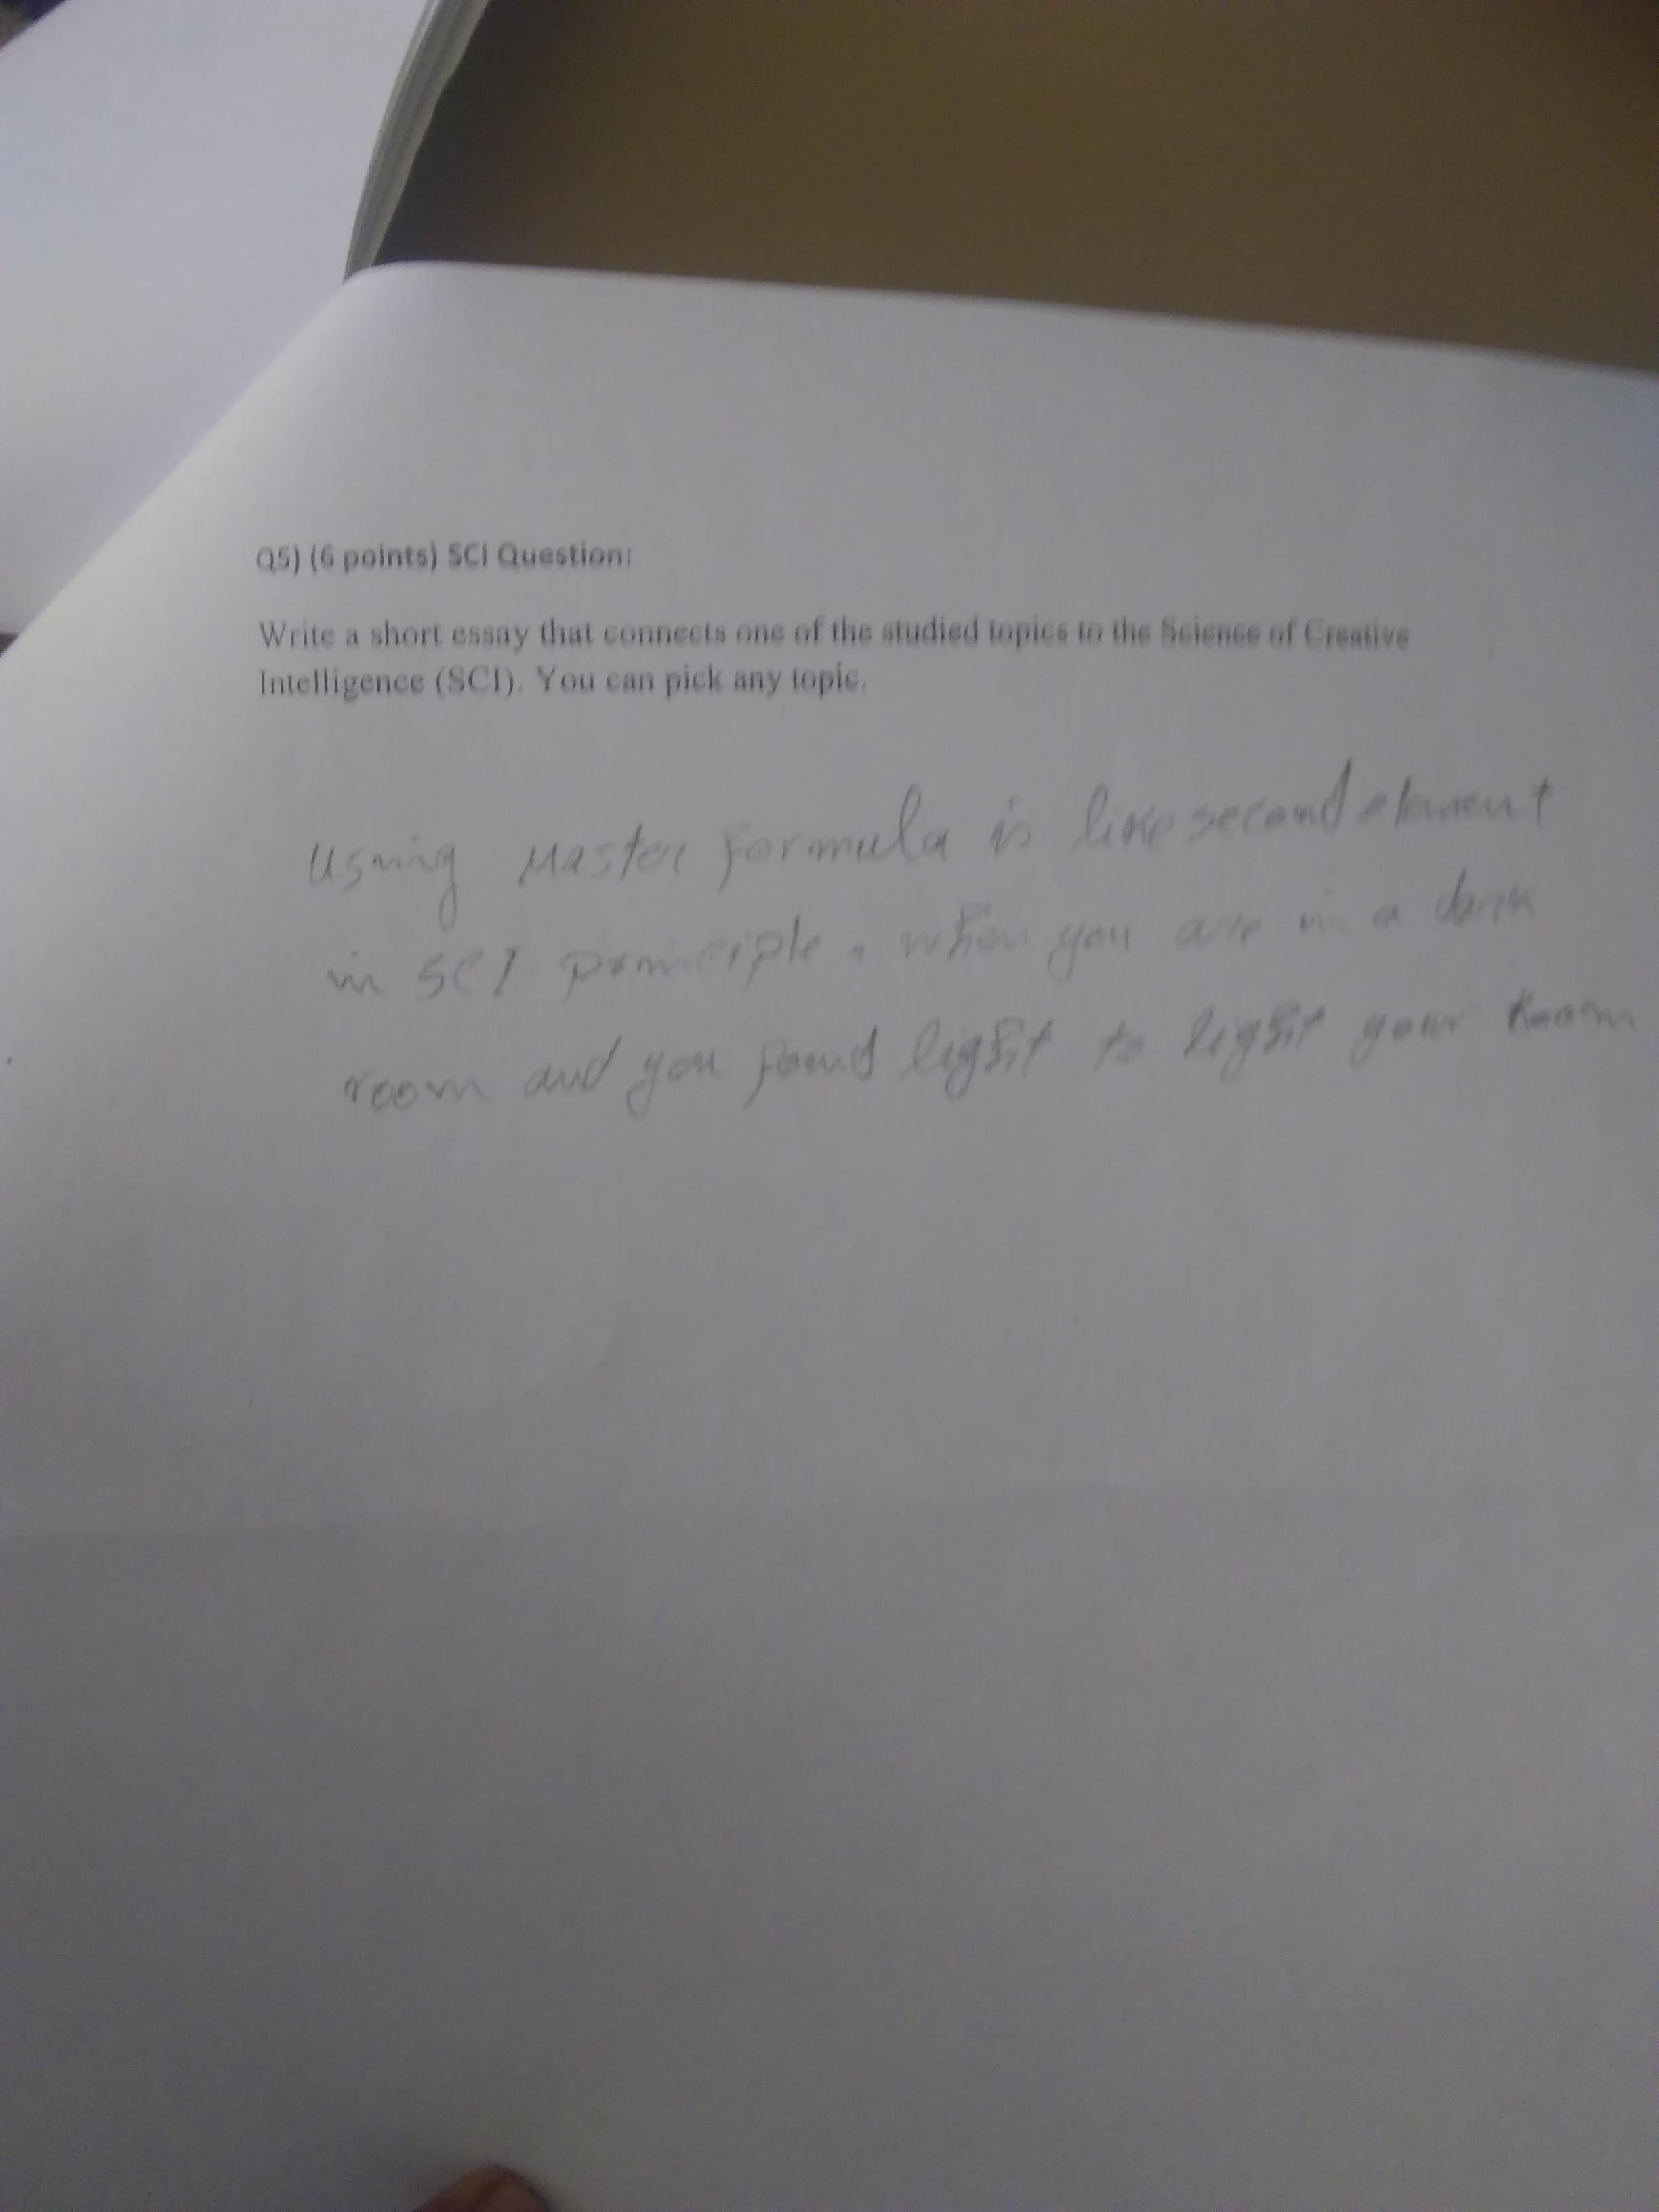 Q5) (6 points) SCI Question:
Write a short essay that connects one of the studied topics to the Science of Creative
Intelligence (SCI). You can pick any topic.
Using Master formula is like second element
in SCI principle. when you are in a dark
room and you found light to light your room